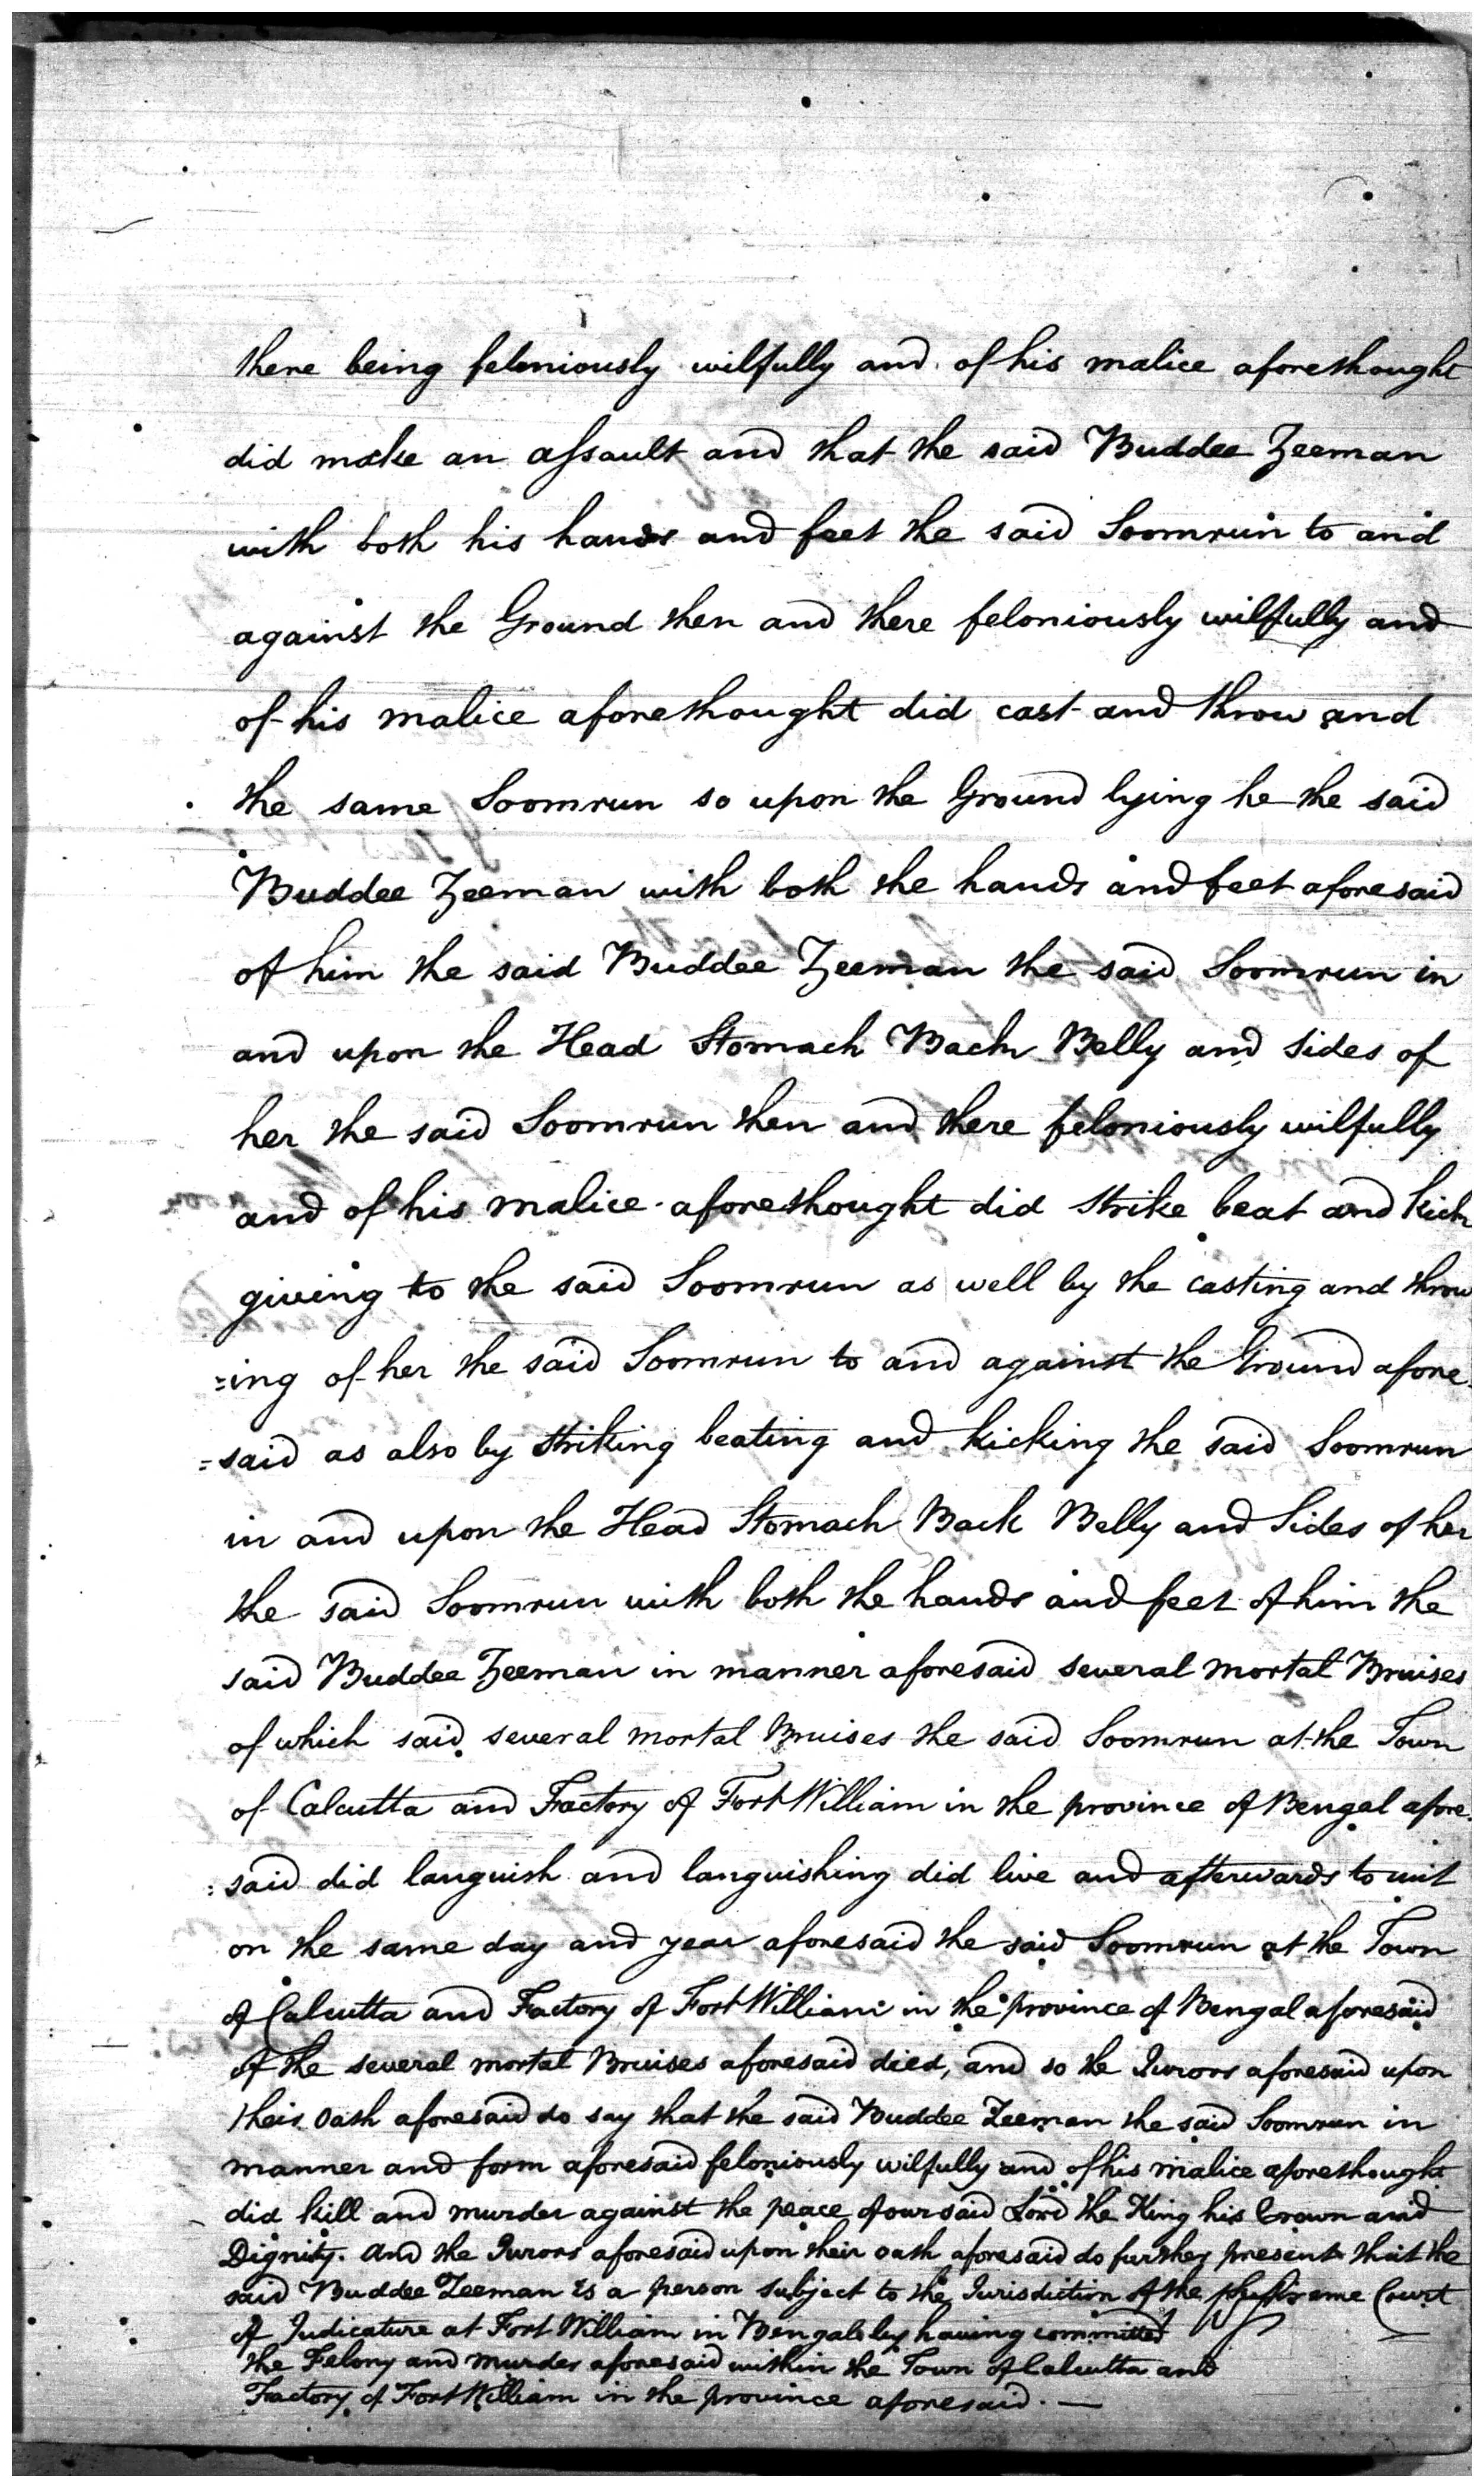 there being feloniously wilfully and of his malice aforethought
did make an assault and that the said Buddee Zeeman
with both his hands and feet the said Soomrun to and
against the Ground then and there feloniously wilfully and
of his malice aforethought did cast and throw and
the same Soomrun so upon the Ground lying he the said
Buddee Zeeman with both the hands and feet aforesaid
of him the said Buddee Zeeman the said Soomrun in
and upon the Head Stomach Back Belly and Sides of
her the said Soomrun then and there feloniously wilfully
and of his malice aforethought did strike beat and kick
giving to the said Soomrun as well by the casting and throw
=ing of her the said Soomrun to and against the Ground afore
=said as also by striking beating and kicking the said Soomrun
in and upon the Head Stomach Back Belly and Sides of her
the said Soomrun with both the hands and feet of him the
said Buddee Zeeman in manner aforesaid several mortal Bruises
of which said several mortal Bruises the said Soomrun at the Town
of Calcutta and Factory of Fort William in the province of Bengal afore
:said did languish and languishing did live and afterwards to wit
on the same day and year aforesaid the said Soomrun at the Town
of Calcutta and Factory of Fort William in the province of Bengal aforesaid
of the several mortal Bruises aforesaid died, and so the Jurors aforesaid upon
their Oath aforesaid do say that the said Buddee Zeeman the said Soomrun in
manner and form aforesaid feloniously wilfully and of his malice aforethought
did kill and murder against the peace of our said Lord the King his Crown and
Dignity. And the Jurors aforesaid upon their oath aforesaid do further present that the
said Buddee Zeeman is a person subject to the Jurisdiction of the Supreme Court
of Judicature at Fort William in Bengal by having committed
the Felony and Murder aforesaid within the Town of Calcutta and
Factory of Fort William in the province aforesaid. —